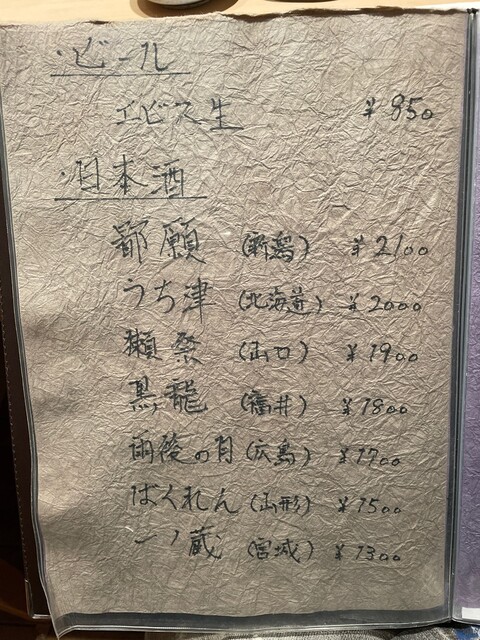 ・ビール
エビス生 ¥850
・日本酒
鄙願 (新潟) ¥2100
うち津 (北海道) ¥2000
獺祭 (山口) ¥1900
黒龍 (福井) ¥1800
雨後の月 (広島) ¥1700
ばくれん (山形) ¥1500
一ノ蔵 (宮城) ¥1300